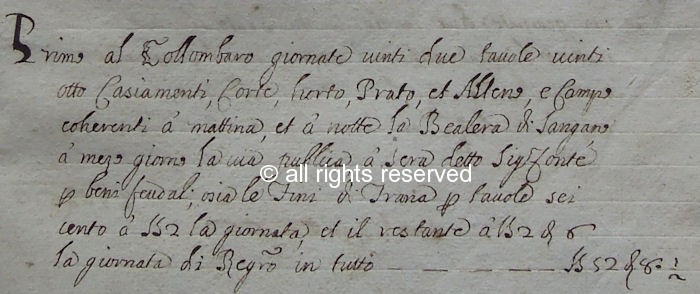 Primo al Collombaro giornate vinti due tavole vinti
otto Casiamenti, Corte, horto, Prato, et Alleno, e Campo
coherenti à mattina, et à notte la Bealera di Sangano
à mezo giorno la via publica, à sera detto Sig.r Conte
p beni feudali, osia le Fini di Trana p tavole sei
cento à 2 la giornata, et il restante à 2 6
la giornata di Regro in tutto — — — — 52 8
© all rights reserved